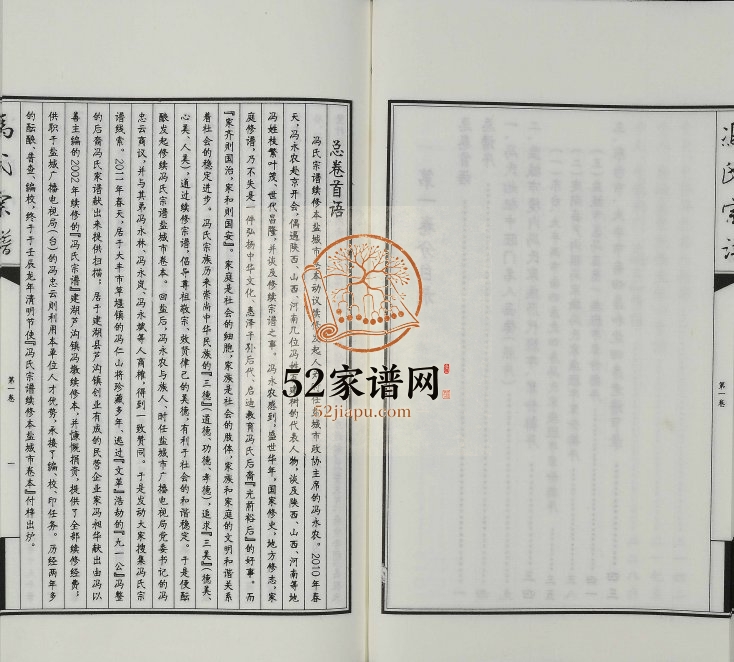 冯氏宗谱
总卷首语
冯氏宗谱续修本盐城市卷本动议续修发起人 任盐城市政协主席的冯永农。2010年春
天，冯永农赴京开会，偶遇陕西、山西、河南几位冯 树的代表人物，谈及陕西、山西、河南等地
冯姓枝繁叶茂、世代昌隆，并谈及修续宗谱之事。冯永农感到，盛世华年，国家修史，地方修志，家
庭修谱，乃不失是一件弘扬中华文化、惠泽子孙后代、启迪教育冯氏后裔『光前裕后』的好事。而
『家齐则国治，家和则国安』。家庭是社会的细胞，家族是社会的肢体，家族和家庭的文明和谐关系
着社会的稳定进步。冯氏宗族历来崇尚中华民族的『三德』（道德、功德、孝德），追求『三美』（德美、
心美、人美），通过续修宗谱，倡导尊祖敬宗、效贤律己的美德，有利于社会的和谐稳定。于是便酝
酿发起修续冯氏宗谱盐城市卷本。回盐后，冯永农与族人、时任盐城市广播电视局党委书记的冯
忠云商议，并与其弟冯永林、冯永岚、冯永斌等人商榷，得到一致赞同。于是发动大家搜集冯氏宗
谱线索。2011年春天，居于大丰市草堰镇的冯仁山将珍藏多年、逃过『文革』浩劫的『九一公』冯整
的后裔冯氏家谱献出来提供扫描；居于建湖县芦沟镇创业有成的民营企业家冯昶华献出由冯以
喜主编的2002年续修的『冯氏宗谱』建湖芦沟镇冯墩续修本，并慷慨捐资，提供了全部续修经费；
供职于盐城广播电视局（台）的冯忠云则利用本单位人才优势，承接了编、校、印任务。历经两年多
的酝酿、普查、编校，终于于壬辰龙年清明节使『冯氏宗谱续修本盐城市卷本』付梓出炉。
第一卷
一
冯氏宗谱
第一卷
52家谱网
52jiapu.com